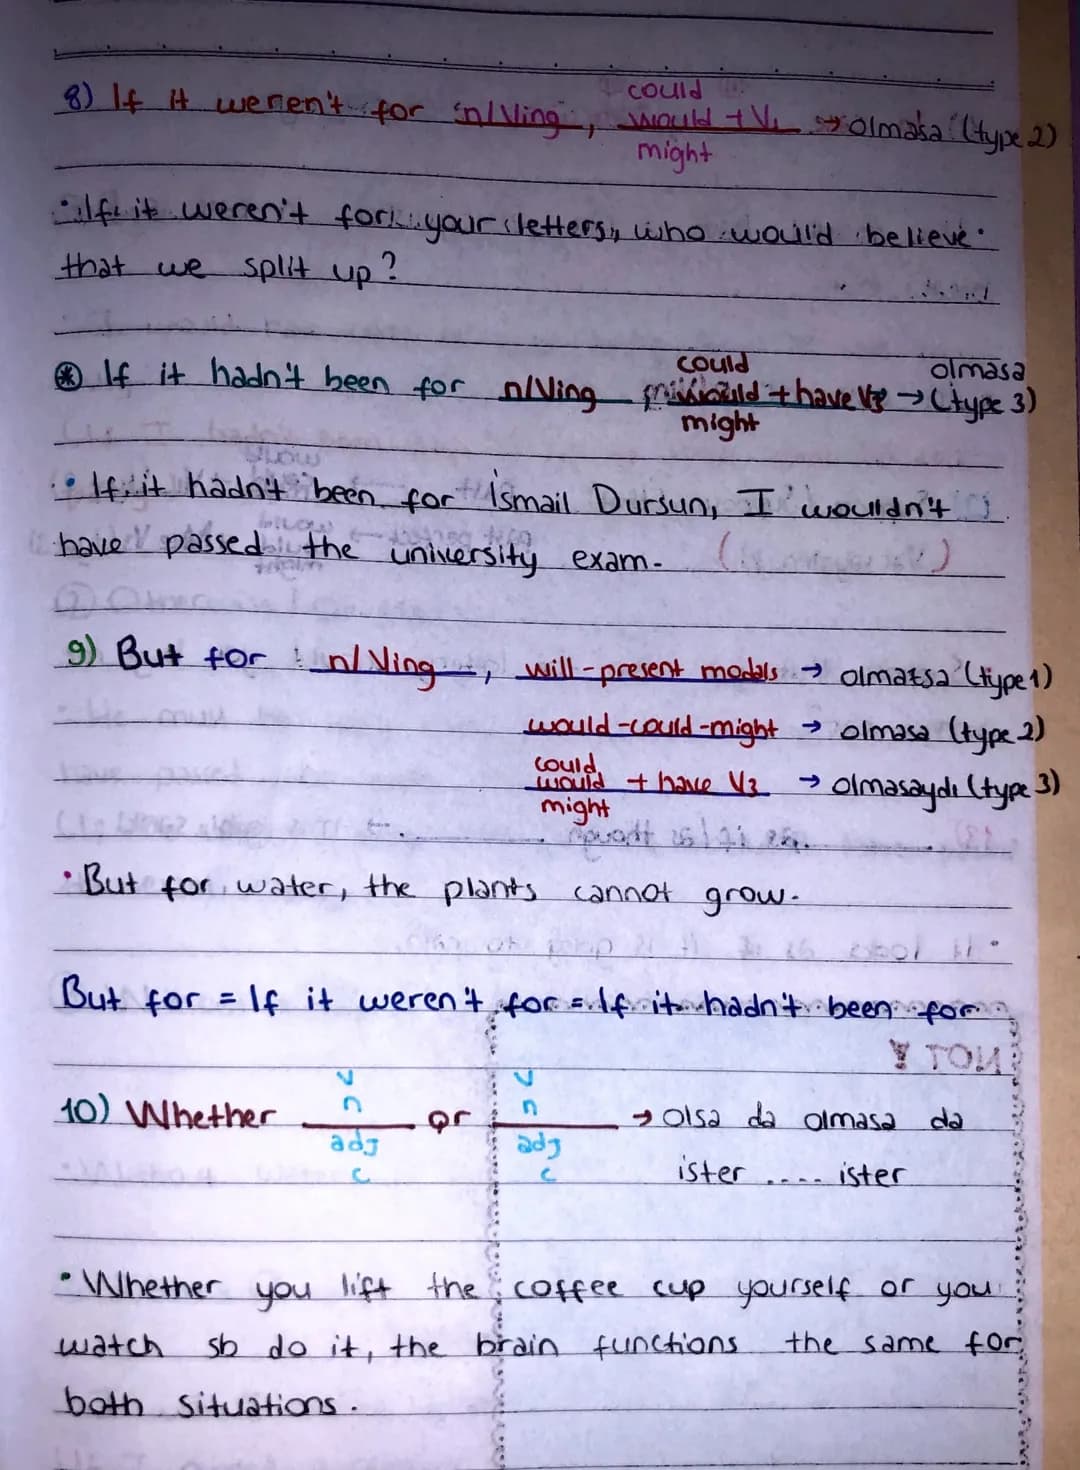 could
8) If it weren't for n/Ving, would + V1 → olmasa (type 2)
might
• If it weren't for your letters, who would believe
that we split up?
could olmasa
⊛ If it hadn't been for n/Ving would + have V3 → (type 3)
might
• If it hadn't been for İsmail Dursun, I wouldn't
have passed the university exam.
9) But for n/Ving, will-present modals → olmazsa (type 1)
would-could-might → olmasa (type 2)
could
would + have V3 → olmasaydı (type 3)
might
• But for water, the plants cannot grow.
But for = If it weren't for = If it hadn't been for
v v
n n
10) Whether ____ or ____ → olsa da olmasa da
adj adj
c c
ister .... ister
• Whether you lift the coffee cup yourself or you
watch sb do it, the brain functions the same for
both situations.